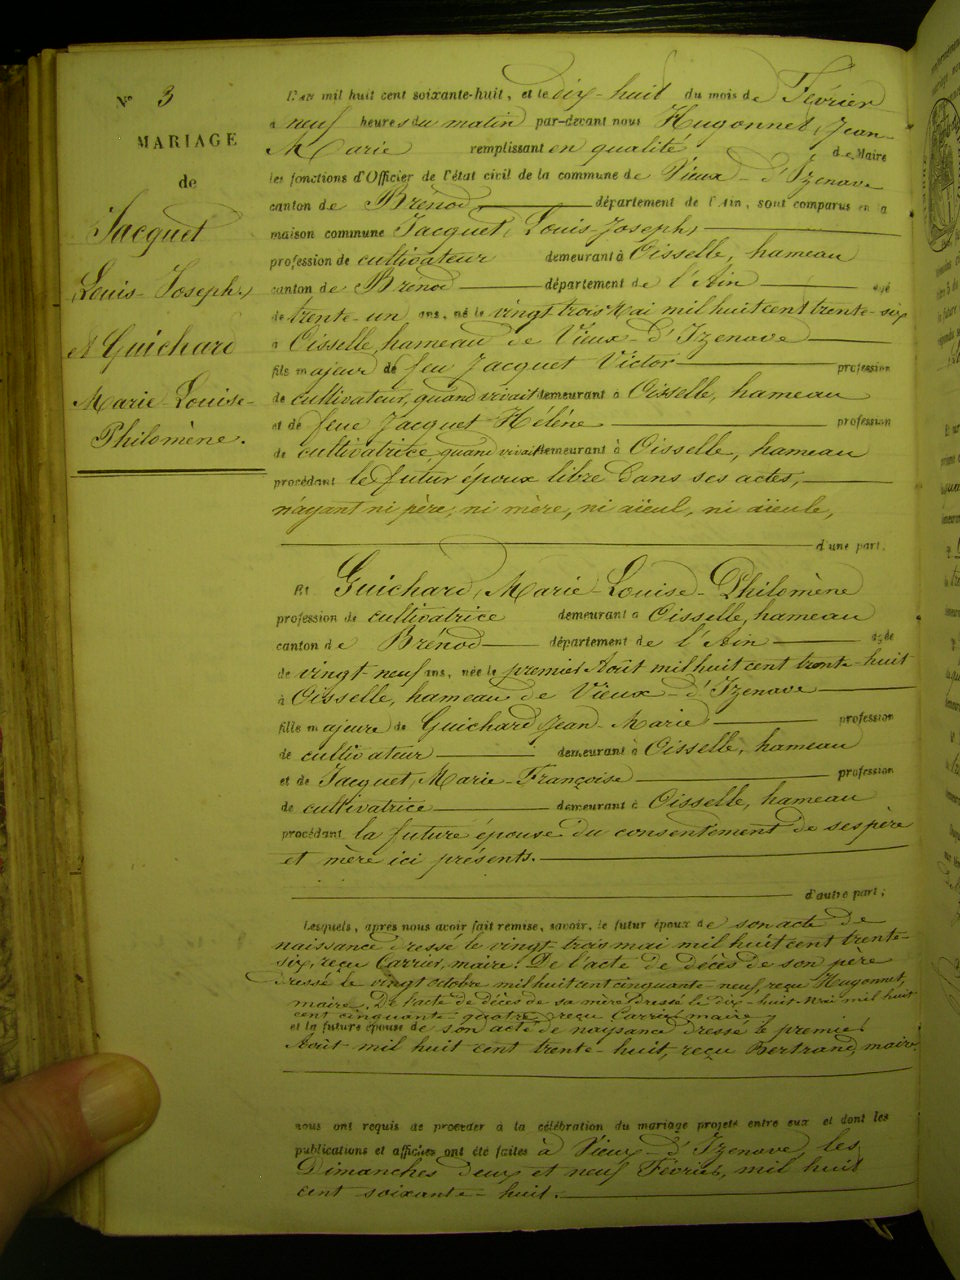 N° 3
MARIAGE
de
Jacquet
Louis-Joseph,
et Guichard
Marie-Louise-
Philomène.
L'an mil huit cent soixante-huit, et le dix-huit du mois de Février
à neuf heures du matin par-devant nous Hugonnet, Jean-
Marie remplissant en qualité de Maire
les fonctions d'Officier de l'état civil de la commune de Vieux-d'Izenave
canton de Brénod département de l'Ain, sont comparus en la
maison commune Jacquet, Louis-Joseph,
profession de cultivateur demeurant à Oisselle, hameau
canton de Brénod département de l'Ain âgé
de trente-un ans, né le vingt trois Mai mil huit cent trente-six
à Oisselle, hameau de Vieux-d'Izenave
fils majeur de feu Jacquet Victor profession
de cultivateur, quand vivait demeurant à Oisselle, hameau
et de feue Jacquet Hélène profession
de cultivatrice quand vivait demeurant à Oisselle, hameau
procédant le futur époux libre dans ses actes,
n'ayant ni père, ni mère, ni aïeul, ni aïeule,
d'une part.
Et Guichard, Marie-Louise-Philomène
profession de cultivatrice demeurant à Oisselle, hameau
canton de Brénod département de l'Ain âgée
de vingt-neuf ans, née le premier Août mil huit cent trente-huit
à Oisselle, hameau de Vieux-d'Izenave
fille majeure de Guichard Jean-Marie profession
de cultivateur demeurant à Oisselle, hameau
et de Jacquet, Marie-Françoise profession
de cultivatrice demeurant à Oisselle, hameau
procédant la future épouse du consentement de ses père
et mère ici présents.
d'autre part;
Lesquels, après nous avoir fait remise, savoir, le futur époux de son acte de
naissance dressé le vingt-trois mai mil huit cent trente-
six, reçu Carrier, maire. De l'acte de décès de son père
dressé le vingt octobre mil huit cent cinquante-neuf, reçu Hugonnet,
maire, De l'acte de décès de sa mère dressé le dix-huit Mai mil huit
cent cinquante quatre, reçu Carrier maire,
et la future épouse de son acte de naysance dressé le premier
Août mil huit cent trente-huit, reçu Bertrand, maire.
nous ont requis de procéder à la célébration du mariage projeté entre eux et dont les
publications et affiches ont été faites à Vieux-d'Izenave, les
Dimanches deux et neuf Février, mil huit
cent soixante-huit.